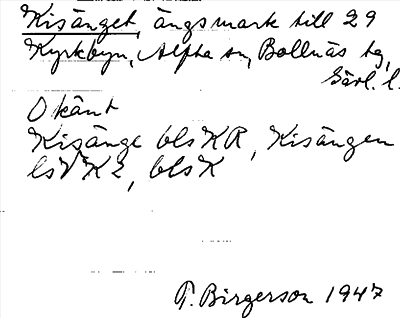 Kisänget, ängsmark till 29
Kyrkbyn, Alfta sn, Bollnäs tg,
Gävl. l.
Okänt
Kisänge bls KR, Kisängen
lsV KL, bls K
P. Birgerson 1947